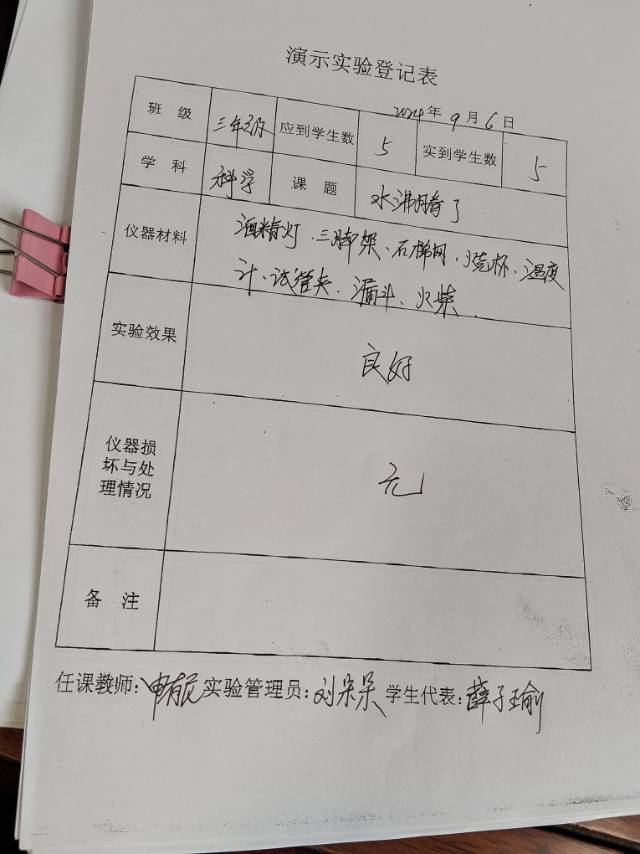 演示实验登记表
2024年9月6日
班 级 三年级 应到学生数 5 实到学生数 5
学 科 科学 课 题 水沸腾了
仪器材料 酒精灯、三脚架、石棉网、烧杯、温度
计、试管夹、漏斗、火柴
实验效果 良好
仪器损
坏与处
理情况 无
备 注
任课教师: 实验管理员:刘朵朵 学生代表:薛子瑜